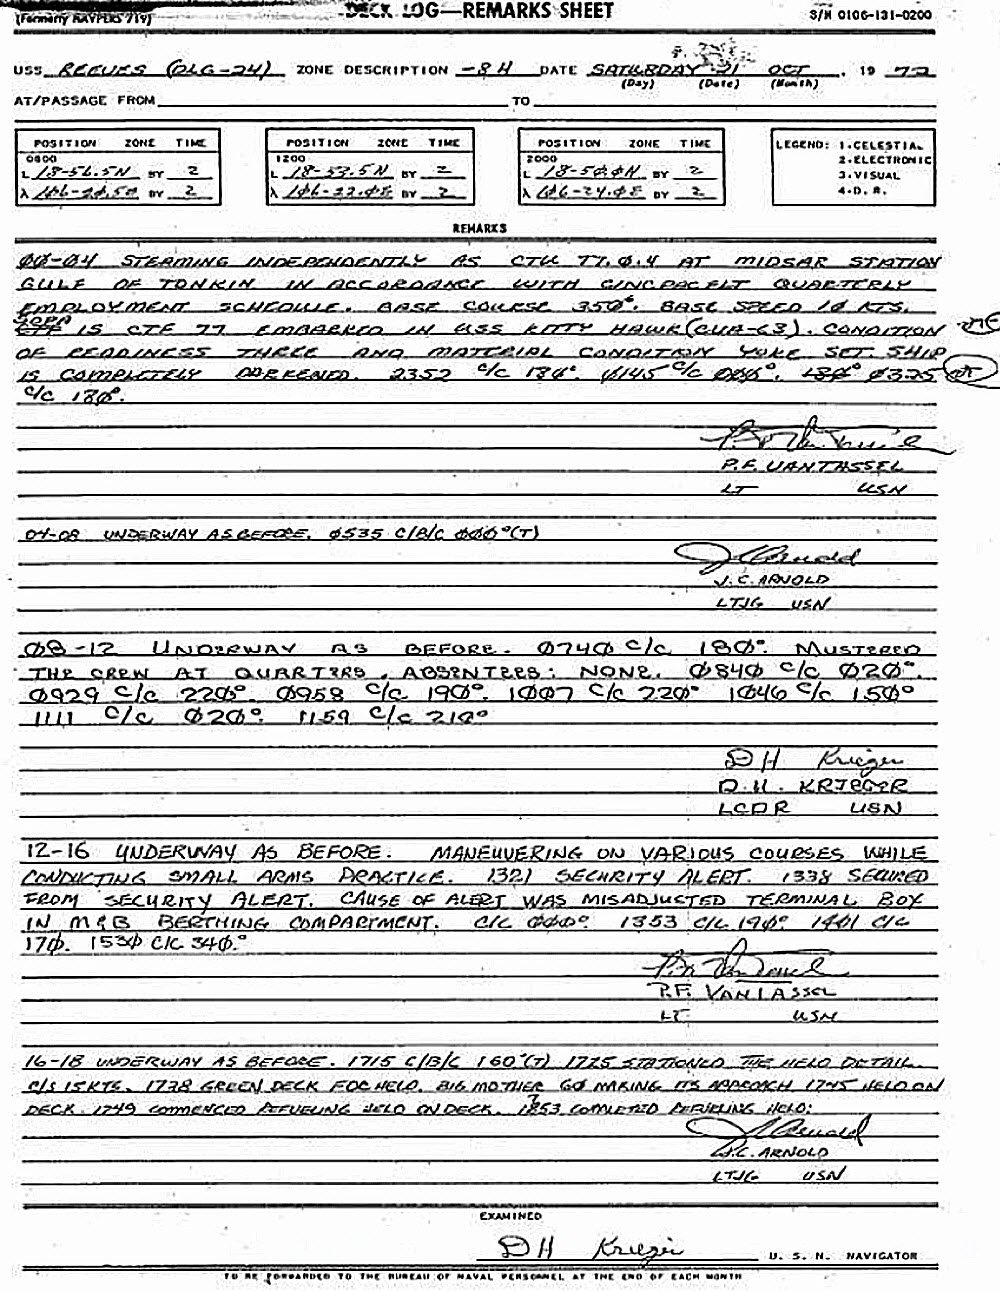 (Formerly NAVPERS 719) DECK LOG—REMARKS SHEET S/N 0106-131-0200
USS REEVES (DLG-24) ZONE DESCRIPTION -8H DATE SATURDAY 21 OCT , 19 72
(Day) (Date) (Month)
AT/PASSAGE FROM TO
POSITION ZONE TIME POSITION ZONE TIME POSITION ZONE TIME LEGEND: 1-CELESTIAL
0800 1200 2000 2-ELECTRONIC
L 18-56.5N BY 2 L 18-53.5N BY 2 L 18-50.0N BY 2 3-VISUAL
λ BY 2 λ BY 2 λ BY 2 4-D. R.
REMARKS
00-04 STEAMING INDEPENDENTLY AS CTU 77.0.4 AT MIDSAR STATION
GULF OF TONKIN IN ACCORDANCE WITH CINCPACFLT QUARTERLY
EMPLOYMENT SCHEDULE. BASE COURSE 350°. BASE SPEED 10 KTS.
IS CTF 77 EMBARKED IN USS KITTY HAWK (CVA-63). CONDITION
OF READINESS THREE AND MATERIAL CONDITION YOKE SET. SHIP
IS COMPLETELY DARKENED. 2352 C/C 180°. 0145 C/C 000°. 180° 0325
C/C 180°.
P.F. VANTASSEL
LT USN
04-08 UNDERWAY AS BEFORE. 0535 C/B/C 000°(T)
J C Arnold
J.C. ARNOLD
LTJG USN
08-12 UNDERWAY AS BEFORE. 0740 C/C 180°. MUSTERED
THE CREW AT QUARTERS, ABSENTEES: NONE. 0840 C/C 020°.
0929 C/C 220°. 0958 C/C 190°. 1007 C/C 220° 1046 C/C 150°
1111 C/C 020°. 1159 C/C 210°
DH Krieger
D.H. KRIEGER
LCDR USN
12-16 UNDERWAY AS BEFORE. MANEUVERING ON VARIOUS COURSES WHILE
CONDUCTING SMALL ARMS PRACTICE. 1321 SECURITY ALERT. 1338 SECURED
FROM SECURITY ALERT. CAUSE OF ALERT WAS MISADJUSTED TERMINAL BOX
IN M&B BERTHING COMPARTMENT. C/C 000° 1353 C/C 190° 1401 C/C
170. 1530 C/C 340.°
P.F. VANTASSEL
LT USN
16-18 UNDERWAY AS BEFORE. 1715 C/B/C 160°(T) 1725 STATIONED THE HELO DETAIL.
C/S 15KTS. 1738 GREEN DECK FOR HELO. BIG MOTHER 60 MAKING ITS APPROACH 1745 HELO ON
DECK. 1749 COMMENCED REFUELING HELO ON DECK. 1753 COMPLETED REFUELING HELO:
J C Arnold
J.C. ARNOLD
LTJG USN
EXAMINED
DH Krieger U. S. N. NAVIGATOR
TO BE FORWARDED TO THE BUREAU OF NAVAL PERSONNEL AT THE END OF EACH MONTH